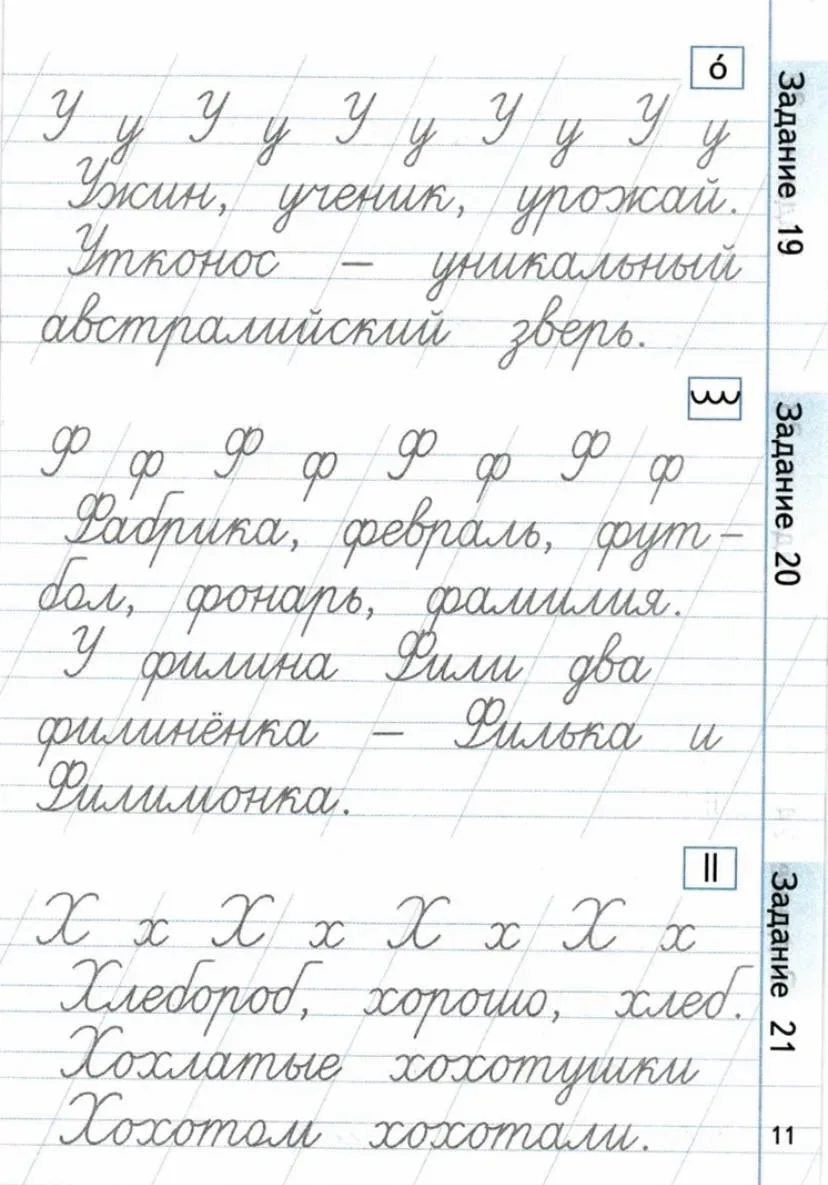 ó
Задание 19
У у У у У у У у У у
Ужин, ученик, урожай.
Утконос – уникальный
австралийский зверь.
Задание 20
Ф ф Ф ф Ф ф Ф ф
Фабрика, февраль, фут-
бол, фонарь, фамилия.
У филина Фили два
филинёнка – Филька и
Филимонка.
Задание 21
Х х Х х Х х Х х
Хлебороб, хорошо, хлеб.
Хохлатые хохотушки
Хохотом хохотали.
11